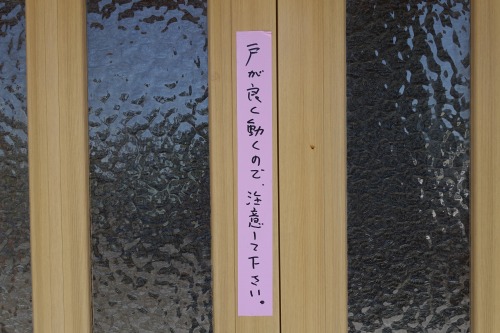 戸が良く動くので、注意して下さい。